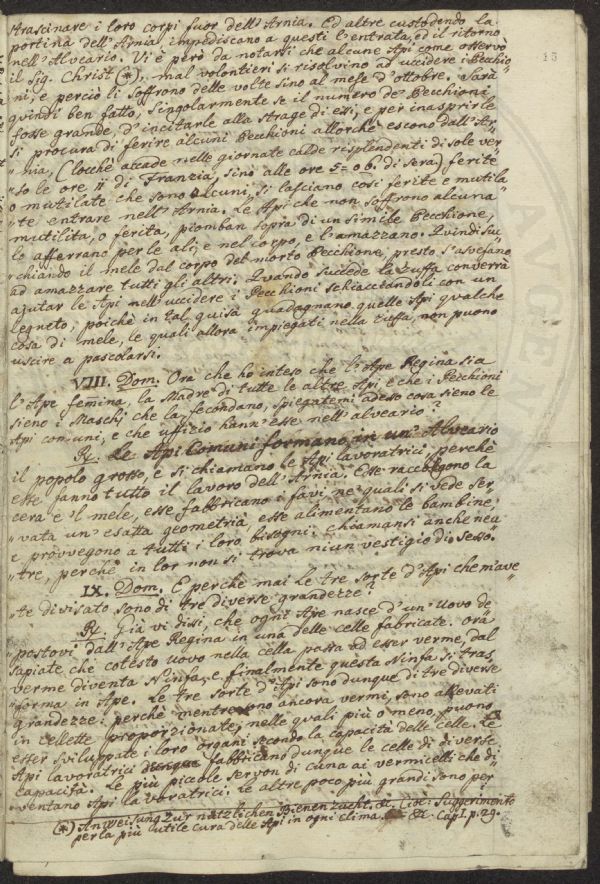 15
strascinare i loro corpi fuor dell'Arnia. Ed altre custodendo la
portina dell'Arnia impediscano a questi l'entrata, ed il ritorno
nell'Alveario. Vi è però da notarsi che alcune Api come osservò
il Sig. Christ (*), mal volontieri si risolvino ad uccidere i Pecchio
ni, e perciò li soffrono delle volte sino al mese d'Ottobre. Sarà
quindi ben fatto, singolarmente se il numero de' Pecchioni
fosse grande, d'incitarle alla strage di essi, e per inasprirle
si procura di ferire alcuni Pecchioni allorchè escono dall'Ar„
„nia, (locche accade nelle giornate calde risplendenti di sole ver„
„so le ore 11 di Franzia, sino alle ore 5= o 6 di sera) ferite
o mutilate che sono alcuni, si lasciano così ferite e mutila„
„te entrare nell'Arnia. Le Api che non soffrono alcuna
mutilita, o ferita, piomban sopra di un simile Pecchione,
lo afferrano per le ali, e nel corpo, e l'amazzano. Quindi su„
„chiando il mele dal corpo del morto Pecchione, presto s'asvefano
ad amazzare tutti gli altri. Quando succede la zuffa converrà
ajutar le Api nell'uccidere i Pecchioni schiacciandoli con un
legneto, poichè in tal guisa guadagnano quelle Api qualche
cosa di mele, le quali allora impiegati nella zuffa, non puono
uscire a pascolarsi.
VIII. Dom. Ora che ho inteso che l'Ape Regina sia
l'Ape femina, la Madre di tutte le altre Api, e che i Pecchioni
sieno i Maschj che la fecondano, spiegatemi adeso cosa sieno le
Api comuni, e che uffizio hann'esse nell'alveario?
R. Le Api Comuni formano in un'Alveario
il popolo grosso, e si chiamano le Api lavoratrici, perchè
esse fanno tutto il lavoro dell'Arnia. Esse raccolgono la
cera e 'l mele, esse fabbricano i favi, ne' quali si vede ser„
„vata un'esatta geometria, esse alimentano le bambine,
e provvegono a tutti i loro bisogni; chiamansi anche neu
„tre, perchè in lor non si trova niun vestigio di sesso.
IX. Dom. E perche mai le tre sorte d'Api che m'ave„
„te divisato sono di tre diverse grandezze?
R. Già vi dissi, che ogni Ape nasce d'un uovo de
„postovi dall'Ape Regina in una delle celle fabricate. ora
sapiate che cotesto uovo nella cella passa ad esser verme, dal
verme diventa Ninfa, e finalmente questa Ninfa si tras„
„forma in Ape. Le tre sorte d'Api sono dunque di tre diverse
grandezze: perchè mentre sono ancora vermi, sono allevati
in cellette proporzionate, nelle quali più o meno, puono
esser sviluppate i loro organi secondo la capacità delle celle. Le
Api lavoratrici fabbricano dunque le celle di diverse
capacità. Le più piccole servon di cuna ai vermicelli che di„
„ventano Api lavoratrici: le altre poco più grandi sono per
(*) Anweisung zur nützlichen Bienenzucht, &c. Cioè: Suggerimento
per la più utile cura delle Api in ogni clima. &c. Cap I. p. 29.